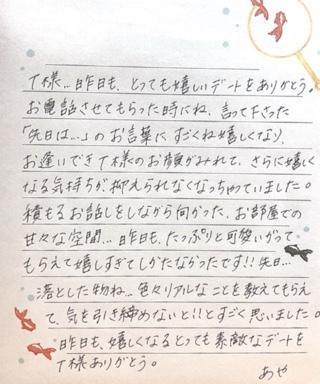 T様…昨日も、とっても嬉しいデートをありがとう。
お電話させてもらった時にね、言って下さった
「先日は…」のお言葉に すごくね嬉しくなり、
お逢いでき T様のお顔がみれて、さらに嬉しく
なる気持ちが抑えられなくなっちゃていました。
積もるお話しをしながら向かった、お部屋での
甘々な空間…昨日も、たっぷりと可愛いがって、
もらえて嬉しすぎてしかたなかったです!!先日…
落とした物ね…色々リアルなことを教えてもらえ
て、気を引き締めないと!!とすごく思いました。
昨日も、嬉しくなるとっても素敵なデートを
T様ありがとう。
あや